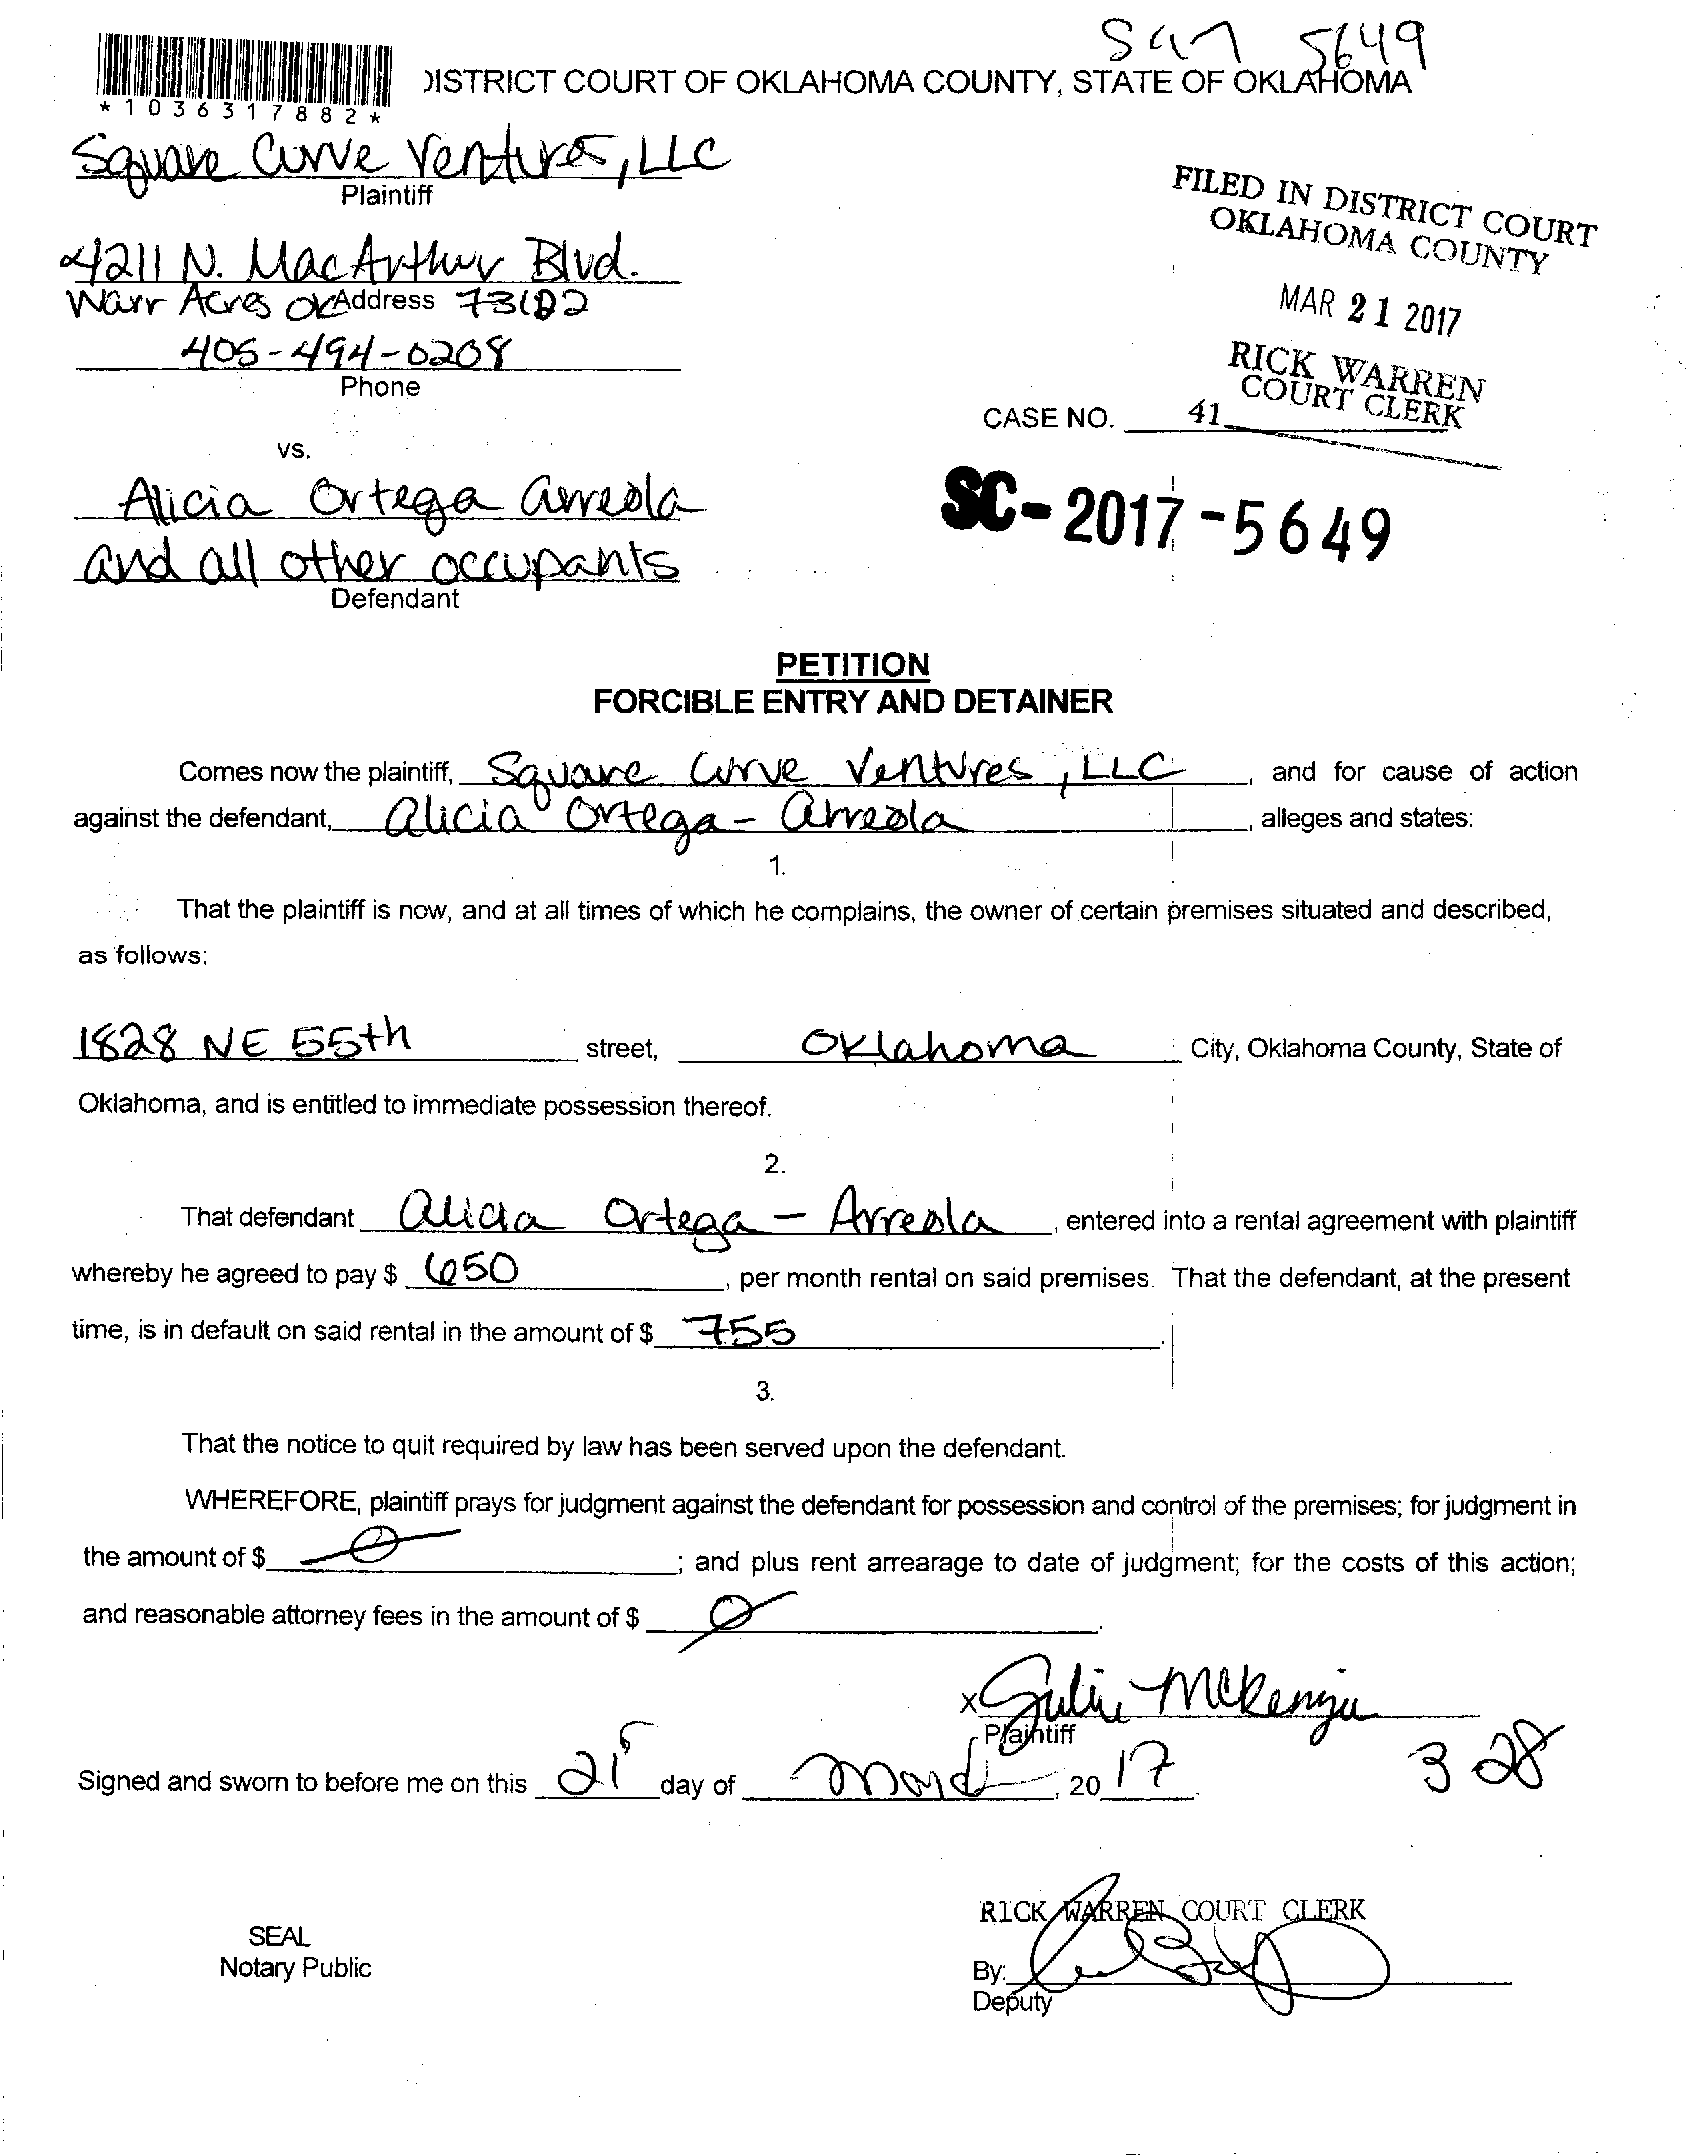 5649
DISTRICT COURT OF OKLAHOMA COUNTY, STATE OF OKLAHOMA
*1036317882*
Square Curve Ventures, LLC
Plaintiff
FILED IN DISTRICT COURT
OKLAHOMA COUNTY
4211 N. MacArthur Blvd.
Warr Acres OK Address 73122
MAR 21 2017
405-494-0208
Phone
RICK WARREN
COURT CLERK
CASE NO. 41
vs.
Alicia Ortega Arreola
and all other occupants
Defendant
SC-2017-5649
PETITION
FORCIBLE ENTRY AND DETAINER
Comes now the plaintiff, Square Curve Ventures, LLC, and for cause of action
against the defendant, Alicia Ortega-Arreola, alleges and states:
1.
That the plaintiff is now, and at all times of which he complains, the owner of certain premises situated and described,
as follows:
1828 NE 55th street, Oklahoma City, Oklahoma County, State of
Oklahoma, and is entitled to immediate possession thereof.
2.
That defendant Alicia Ortega-Arreola, entered into a rental agreement with plaintiff
whereby he agreed to pay $ 650, per month rental on said premises. That the defendant, at the present
time, is in default on said rental in the amount of $ 755.
3.
That the notice to quit required by law has been served upon the defendant.
WHEREFORE, plaintiff prays for judgment against the defendant for possession and control of the premises; for judgment in
the amount of $ 0; and plus rent arrearage to date of judgment; for the costs of this action;
and reasonable attorney fees in the amount of $ 0.
x Julie McKenzie
Plaintiff
Signed and sworn to before me on this 21 day of March, 2017 3 28
RICK WARREN COURT CLERK
SEAL
Notary Public
By:
Deputy